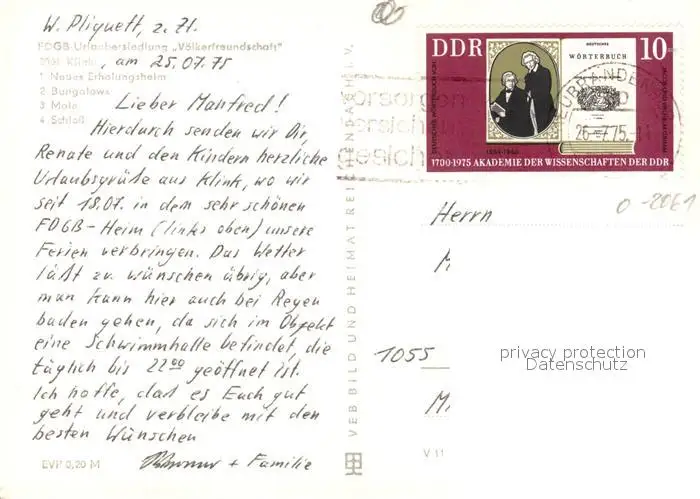 W. Pliquett, z. Zt.
FDGB-Urlaubersiedlung „Völkerfreundschaft"
Klink, am 25.07.75
1 Neues Erholungsheim
2 Bungalows
3 Mole
4 Schloß
Lieber Manfred!
Hierdurch senden wir Dir,
Renate und den Kindern herzliche
Urlaubsgrüße aus Klink, wo wir
seit 18.07. in dem sehr schönen
FDGB-Heim (links oben) unsere
Ferien verbringen. Das Wetter
läßt zu wünschen übrig, aber
man kann hier auch bei Regen
baden gehen, da sich im Objekt
eine Schwimmhalle befindet, die
täglich bis 22⁰⁰ geöffnet ist.
Ich hoffe, daß es Euch gut
geht und verbleibe mit den
besten Wünschen
+ Familie
EVP 0,20 M
VEB BILD UND HEIMAT REICHENBACH I. V.
V 11
DDR
10
DEUTSCHES
WÖRTERBUCH
1700-1975 AKADEMIE DER WISSENSCHAFTEN DER DDR
NEUBRANDENBURG
26.-7.75
0-2061
Herrn
M
1055
privacy protection
Datenschutz
M